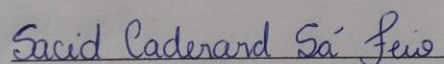 Sacid Caderard Sá Feio